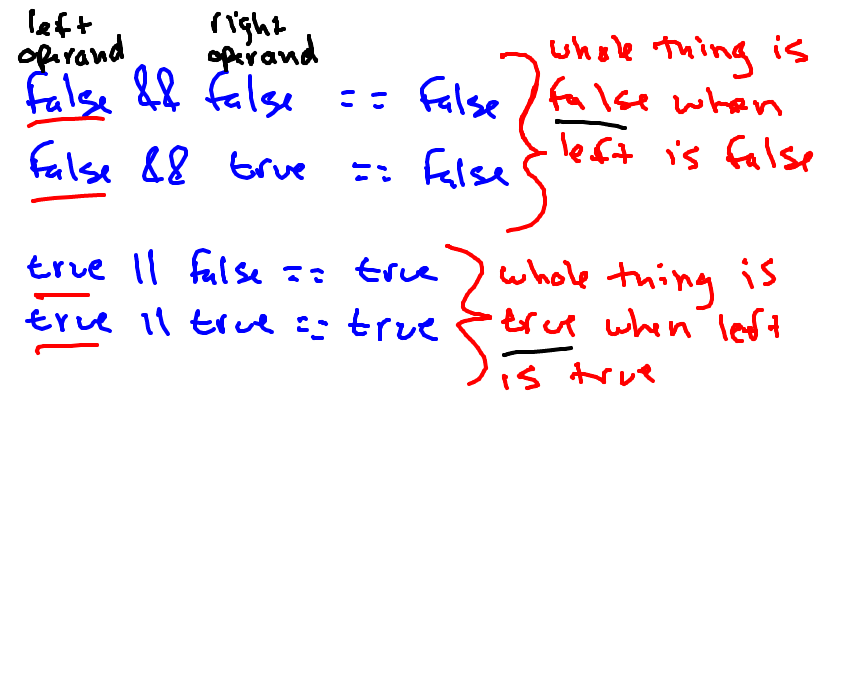 left operand
right operand
false && false == false
false && true == false
whole thing is
false when
left is false
true || false == true
true || true == true
whole thing is
true when left
is true